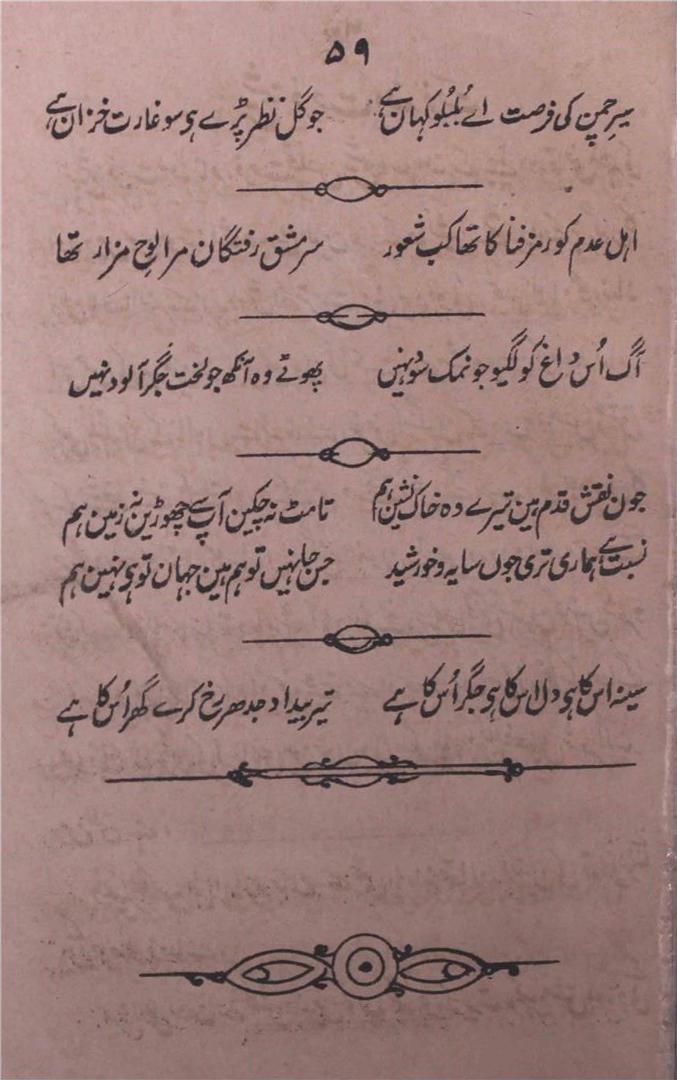 ۵۹
سیرِ چمن کی فرصت اے بُلبُلو کہان ہے جو گل نظر پڑے ہی سو غارت خزان ہے
اہل عدم کو رمز فنا کا تھا کب شعور سر مشق رفتگان مرا لوحِ مزار تھا
آگ اُس داغ کو لگیو جو نمک سود نہیں پھوٹے وہ آنکھ جو لخت جگر آلود نہیں
جون نقش قدم ہین تیرے دہ خاک نشین ہم تا مٹ نہ چکین آپ سے چھوڑین نہ زمین ہم
نسبت ہے ہماری تری جوں سایہ و خورشید جس جا نہیں تو ہم ہین جہان تو ہی نہین ہم
سینہ اس کا ہی دل اس کا ہی جگر اُس کا ہے تیر بیداد جدھر رخ کرے گھر اُس کا ہے